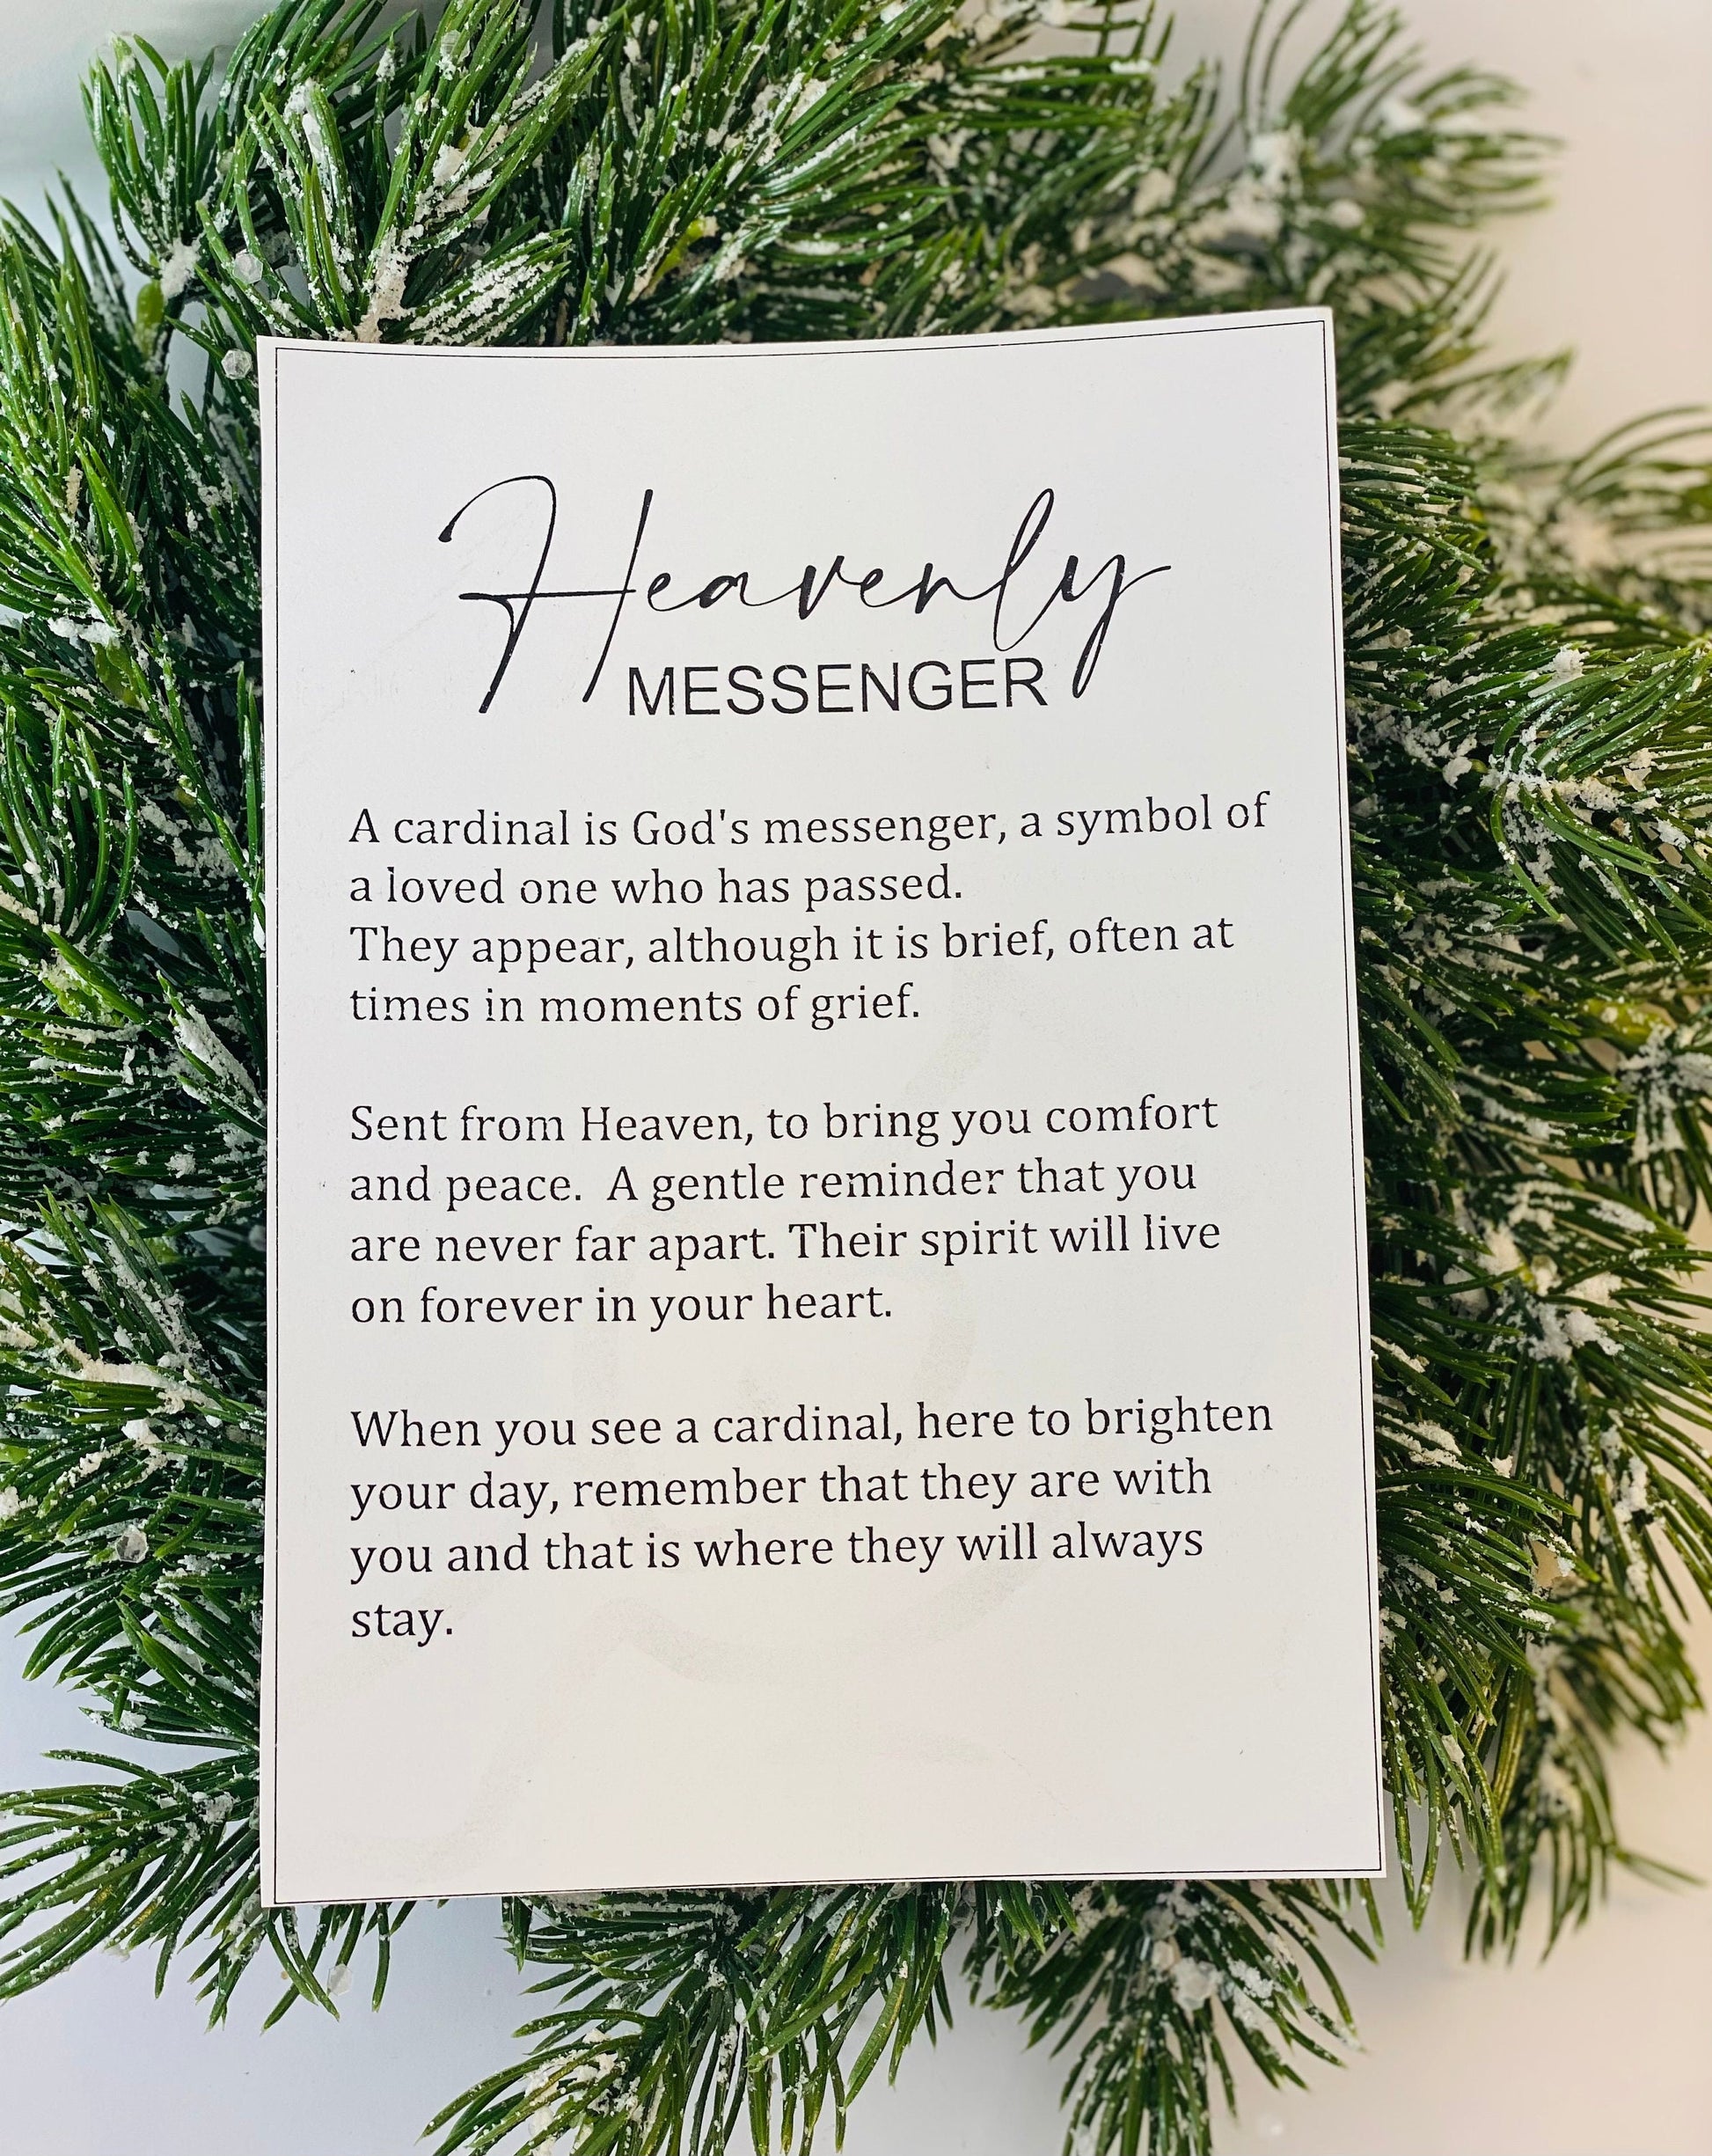 Heavenly
MESSENGER
A cardinal is God's messenger, a symbol of
a loved one who has passed.
They appear, although it is brief, often at
times in moments of grief.
Sent from Heaven, to bring you comfort
and peace.  A gentle reminder that you
are never far apart. Their spirit will live
on forever in your heart.
When you see a cardinal, here to brighten
your day, remember that they are with
you and that is where they will always
stay.